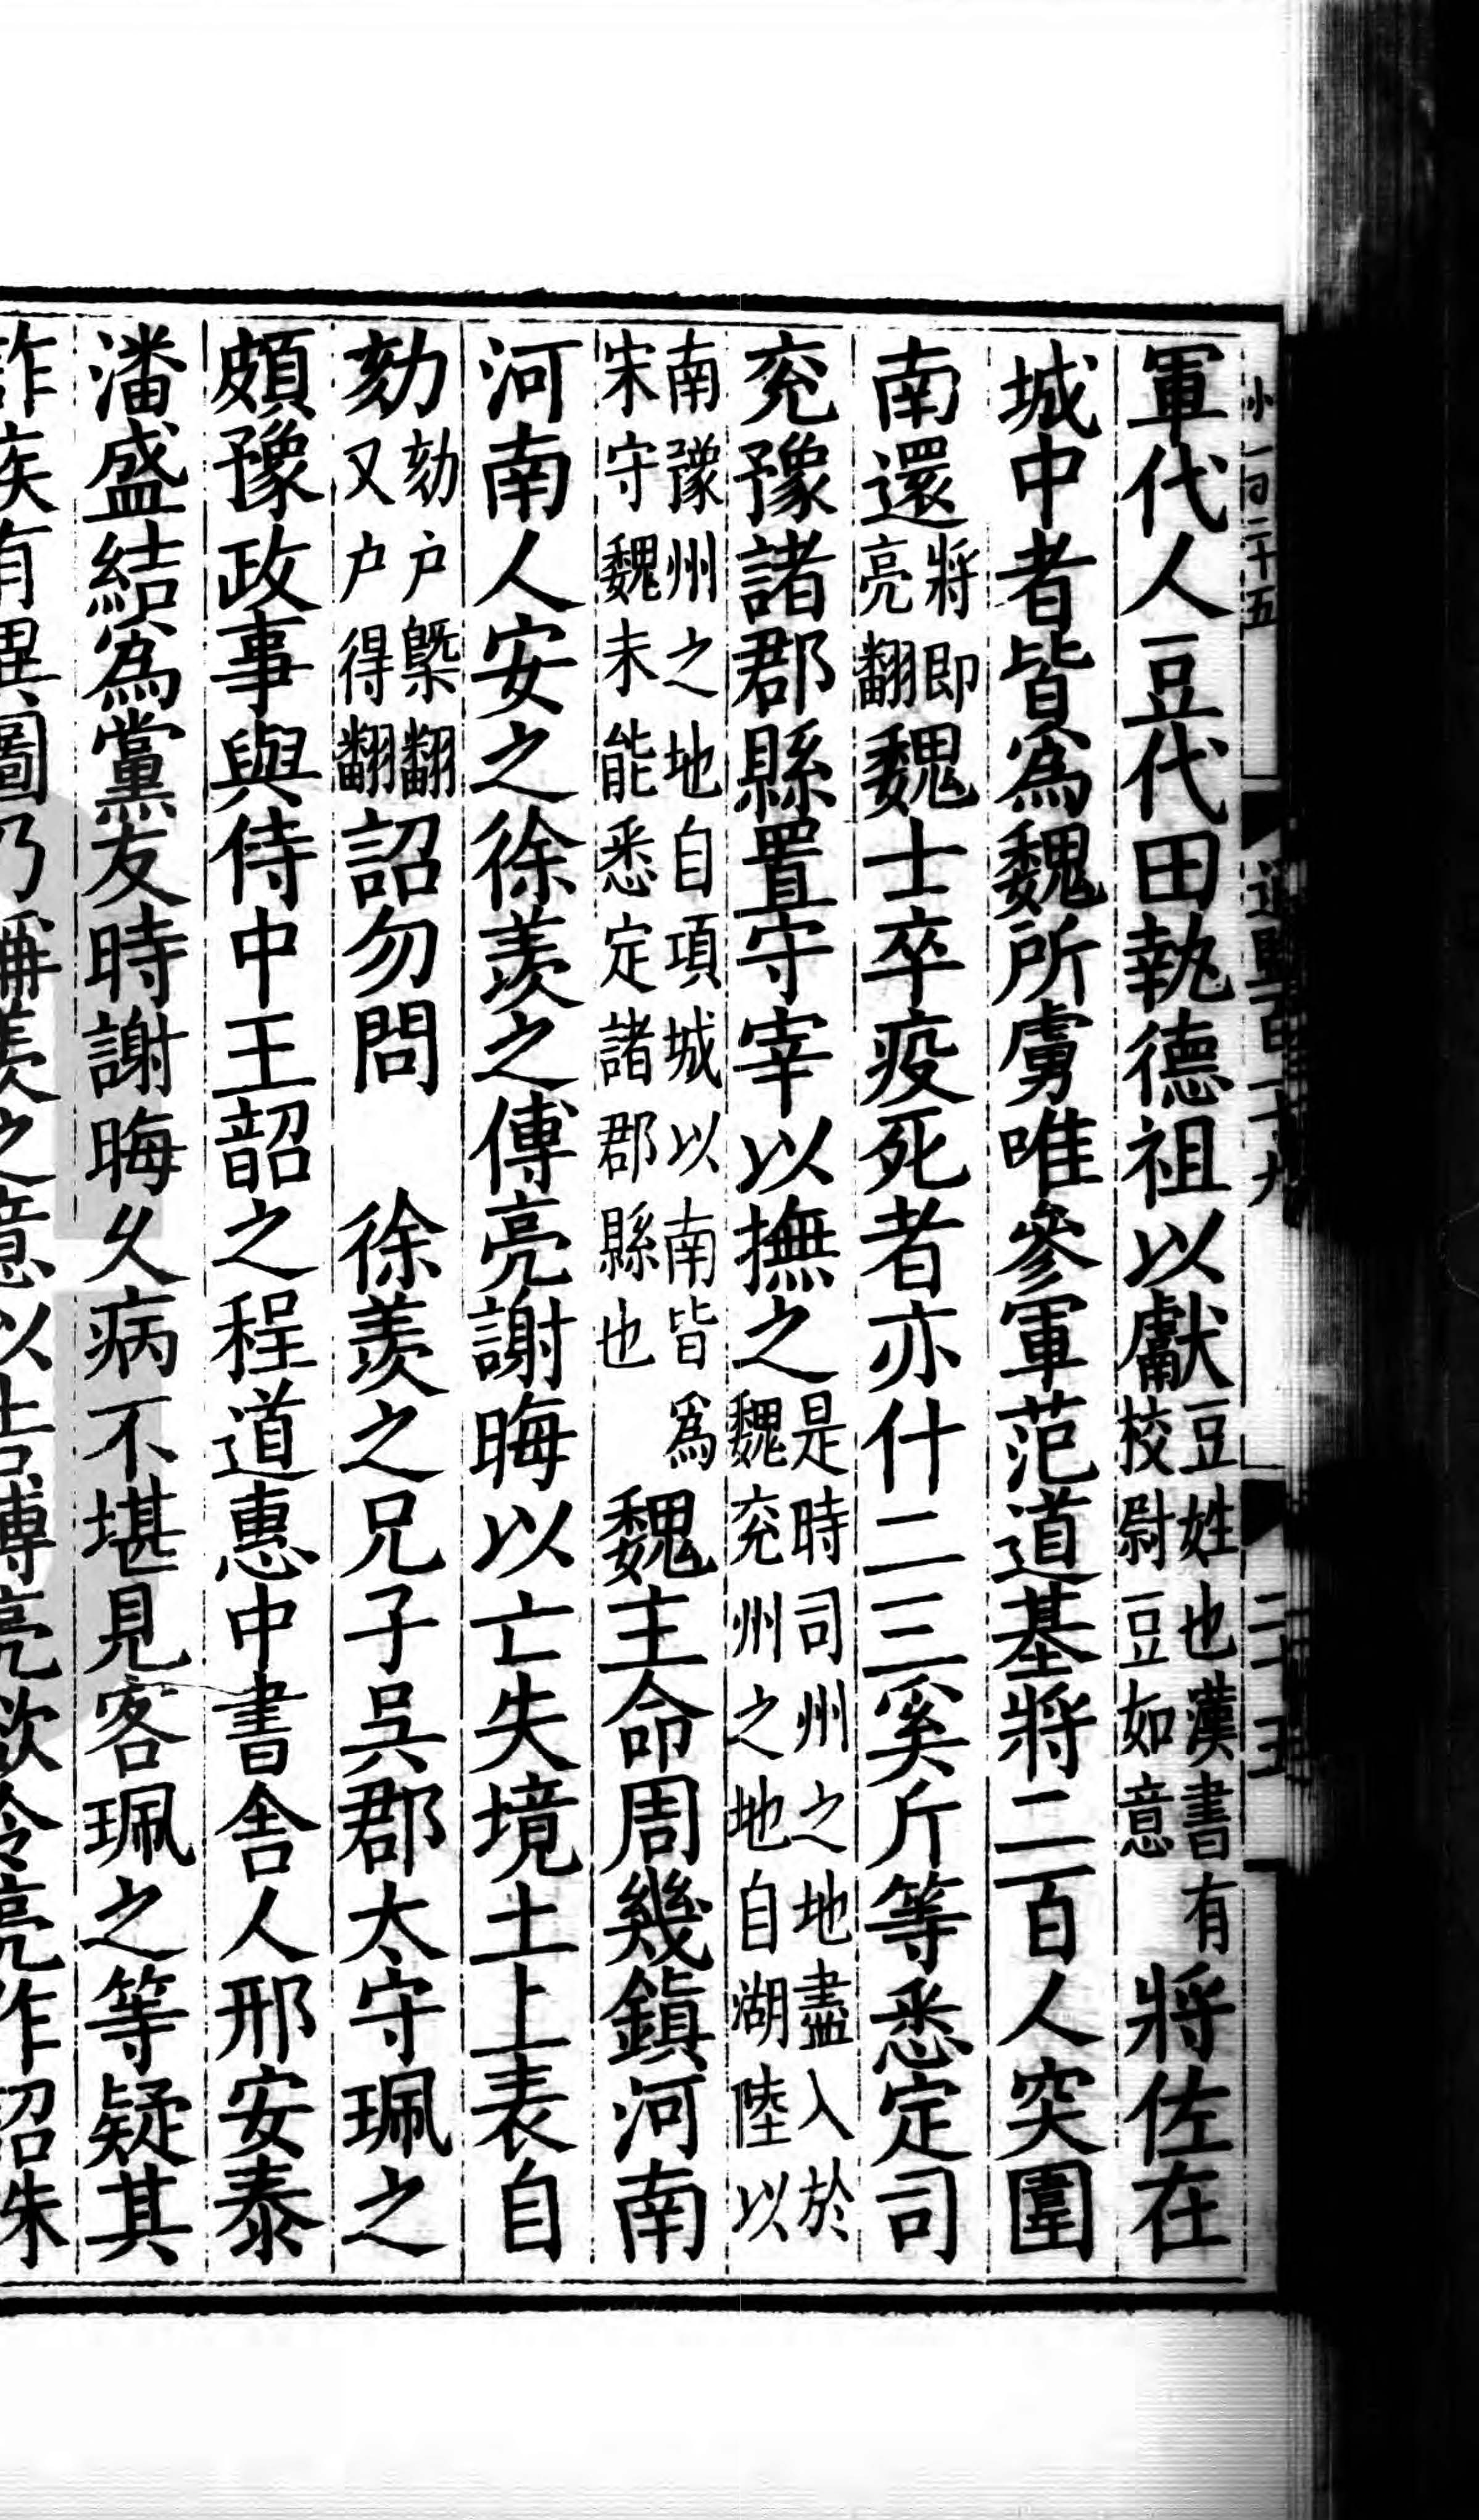 小一百二十五
通鑑百一十九
二十五
軍代人豆代田執德祖以獻豆姓也漢書有校尉豆如意將佐在
城中者皆為魏所虜唯參軍范道基將二百人突圍
南還將即亮翻魏士卒疫死者亦什二三奚斤等悉定司
兖豫諸郡縣置守宰以撫之是時司州之地盡入於魏兖州之地自湖陸以
南豫州之地自項城以南皆為宋守魏未能悉定諸郡縣也魏主命周幾鎮河南
河南人安之徐羨之傅亮謝晦以亡失境土上表自
劾劾戶槩翻又戶得翻詔勿問　徐羨之兄子吳郡太守珮之
頗豫政事與侍中王韶之程道惠中書舍人邢安泰
潘盛結為黨友時謝晦久病不堪見客珮之等疑其
詐疾有異圖乃稱羨之意以告傅亮欲令亮作詔誅